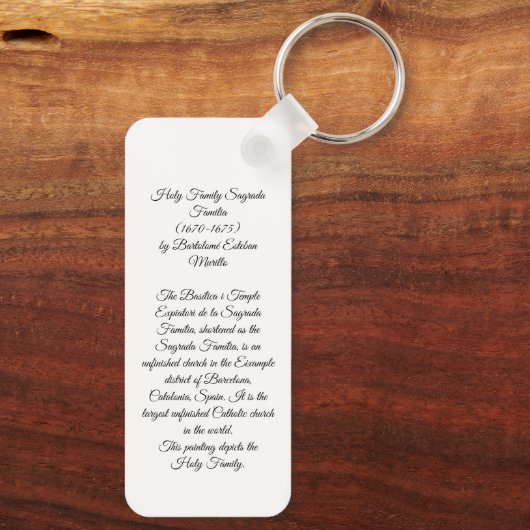 Holy Family Sagrada
Familia
(1670-1675)
by Bartolomé Esteban
Murillo
The Basílica i Temple
Expiatori de la Sagrada
Família, shortened as the
Sagrada Família, is an
unfinished church in the Eixample
district of Barcelona,
Catalonia, Spain. It is the
largest unfinished Catholic church
in the world.
This painting depicts the
Holy Family.